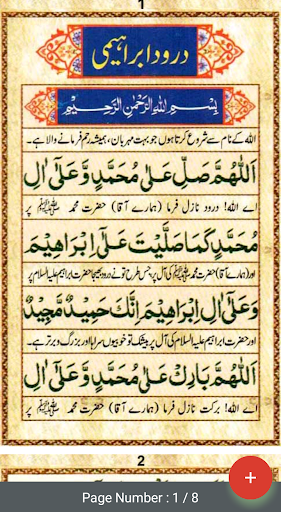 1
درود ابراہیمی
بِسْمِ اللهِ الرَّحْمٰنِ الرَّحِيْمِ
اللہ کے نام سے شروع کرتا ہوں جو بہت مہربان، ہمیشہ رحم فرمانے والا ہے۔
اَللّٰهُمَّ صَلِّ عَلٰى مُحَمَّدٍ وَّعَلٰٓى اٰلِ
اے اللہ! درود نازل فرما (ہمارے آقا) حضرت محمد ﷺ پر
مُحَمَّدٍ كَمَا صَلَّيْتَ عَلٰٓى اِبْرَاهِيْمَ
اور (ہمارے آقا) حضرت محمد ﷺ کی آل پر، جس طرح تو نے درود بھیجا حضرت ابراہیم علیہ السلام پر
وَعَلٰٓى اٰلِ اِبْرَاهِيْمَ اِنَّكَ حَمِيْدٌ مَّجِيْدٌ
اور حضرت ابراہیم علیہ السلام کی آل پر بیشک تو خوبیوں سراہا اور بزرگ و برتر ہے۔
اَللّٰهُمَّ بَارِكْ عَلٰى مُحَمَّدٍ وَّعَلٰٓى اٰلِ
اے اللہ! برکت نازل فرما (ہمارے آقا) حضرت محمد ﷺ پر
2
Page Number : 1 / 8
+